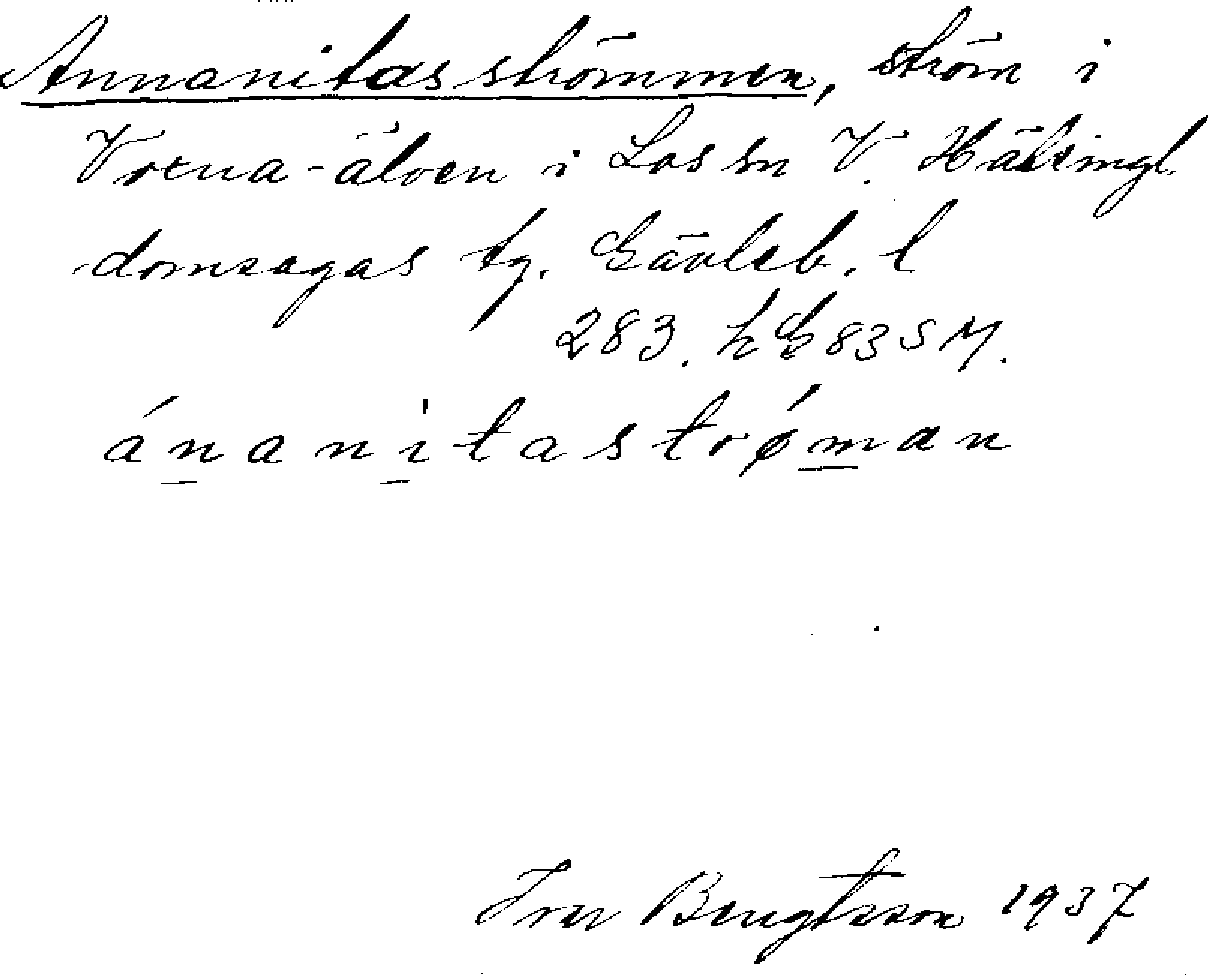 Annanitasströmmen, ström i
Voxna-älven i Los sn V. Hälsingl.
domsagas tg. Gävleb. l
283. 83 SM.
ánanitastrǿman
Iver Bengtsson 1937